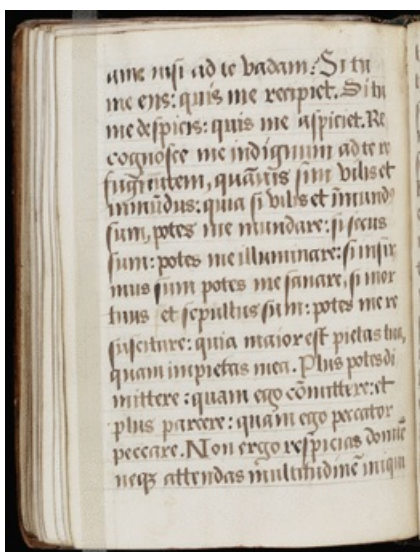 ame nisi ad te vadam: Si tu
me eiis: quis me recipiet. Si tu
me despicis: quis me aspiciet. Re
cognosce me indignum ad te re
fugiētem, quāuis sim vilis et
immūdus: quia si vilis et īmund⁹
sum, potes me mundare: si secus
sum: potes me illuminare: si infir
mus sum potes me sanare, si mor
tuus et sepultus sum: potes me re
suscitare: quia maior est pietas tua,
quam impietas mea. Plus potes di
mittere: quam ego cōmittere: et
plus parcere: quam ego peccator
peccare. Non ergo respicias domīe
neqꝫ attendas multitudinē iniqui